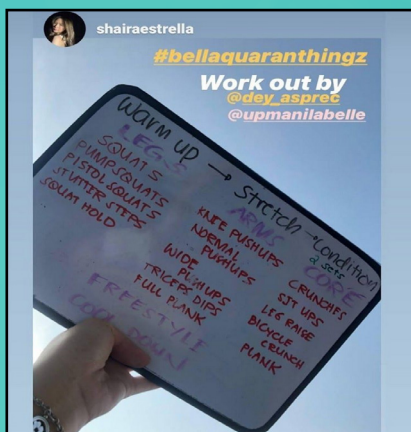 shairaestrella
#bellaquaranthingz
Work out by
@dey_asprec
@upmanilabelle
Warm up → Stretch → Condition
2 sets
LEGS
SQUATS
PUMP SQUATS
PISTOL SQUATS
STUTTER STEPS
SQUAT HOLD
ARMS
KNEE PUSHUPS
NORMAL
PUSHUPS
WIDE
PUSHUPS
TRICEPS DIPS
FULL PLANK
CORE
CRUNCHES
SIT UPS
LEG RAISE
BICYCLE
CRUNCH
PLANK
FREESTYLE
COOL DOWN!